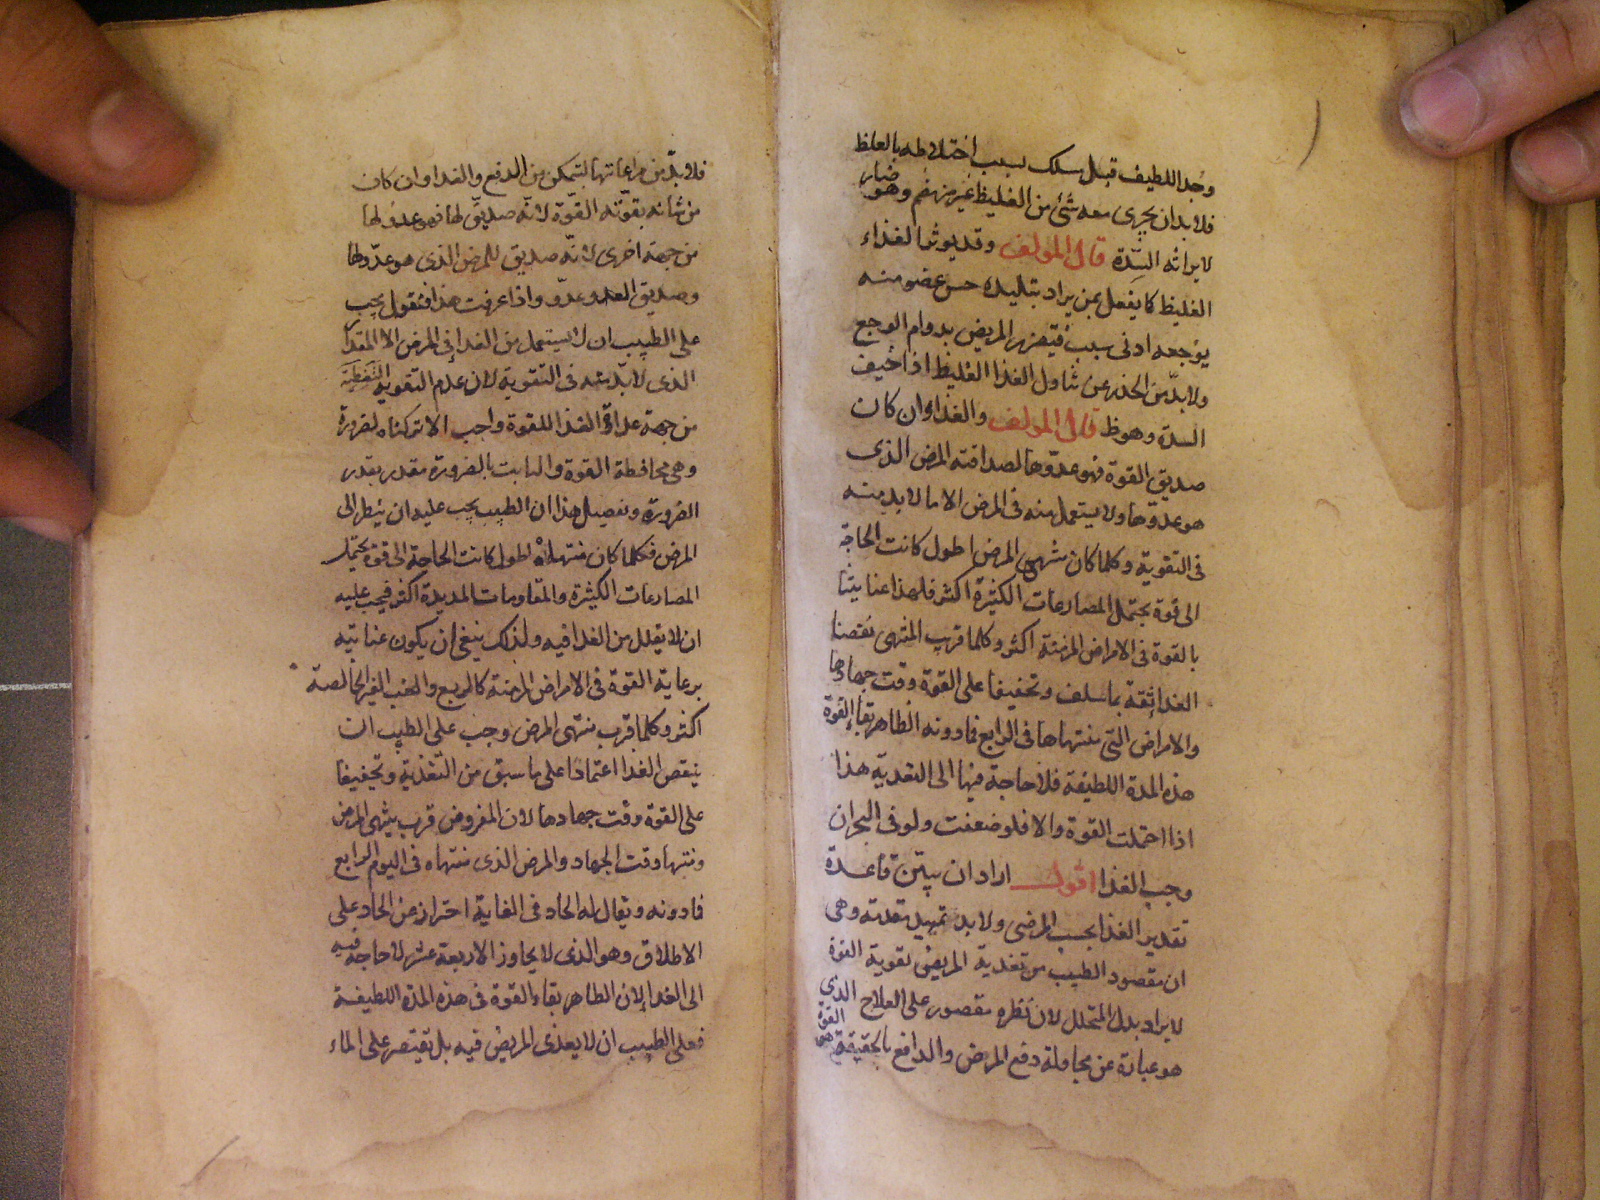 وجد اللطيف قبل سلك بسبب اختلاطه بالغلظ
فلا بد ان يجرى معه شئ من الغليظ غير منهضم وهو ضار
لايراثه السدة قال المولف وقد يوثر الغذاء
الغليظ كما يفعل بمن يراد تبليد حس عضو منه
يوجعه ادنى سبب فيتضرر المريض بدوام الوجع
ولا بد من الحذر عن تناول الغذا الغليظ اذا خيف
السدة وهو ظ قال المولف والغذاء وان كان
صديق القوة فهو عدوها لصداقته المرض الذى
هو عدوها ولا يستعمل منه فى المرض الا ما لا بد منه
فى التقوية وكلما كان منتهى المرض اطول كانت الحاجة
الى قوة يحتمل المصارعات الكثيرة اكثر فلهذا عنايتنا
بالقوة فى الامراض المزمنة اكثر وكلما قرب المنتهى نقصنا
الغذا ثقة بما سلف وتخفيفا على القوة وقت جهادها
والامراض التى منتهاها فى الرابع فما دونه الظاهر بقاء القوة
هذه المدة اللطيفة فلا حاجة فيها الى التغدية هذا
اذا احتملت القوة والا فلو ضعفت ولو فى البحران
وجب الغذا اقول اراد ان يبين قاعدة
تقدير الغذا بحسب المرضى ولا بد تمهيد مقدمة وهى
ان مقصود الطبيب من تغدية المريض تقوية القوة
لا يراد بدل المتحلل لان نظره مقصور على العلاج الذى
هو عبارة عن محاولة دفع المرض والدافع بالحقيقة هى القوة
فلا بد من مراعاتها لتتمكن من الدفع والغدا وان كان
من شانه بقوته القوة لانه صديق لها فهو عدو لها
من جهة اخرى لانه صديق للمرض الذى هو عدو لها
وصديق العدو عدو واذا عرفت هذا فنقول يجب
على الطبيب ان لا يستعمل من الغدا فى المرض الا المقدار
الذى لا بد منه فى التقوية لان عدم التقوية
من جهة عداوة الغذا للقوة واجب الا تركناه لضرورة
وهى محافظة القوة والثابت بالضرورة مقدر بقدر
الضرورة وتفصيل هذا ان الطبيب يجب عليه ان ينظر الى
المرض فكلما كان منتهاه اطول كانت الحاجة الى قوة يحتمل
المصارعات الكثيرة والمقاومات المديدة اكثر فيجب عليه
ان لا يقلل من الغدا فيه ولذلك ينبغى ان يكون عنايته
برعاية القوة فى الامراض المزمنة كالربع والغب الغير الخالصة
اكثر وكلما قرب منتهى المرض وجب على الطبيب ان
ينقص الغدا اعتمادا على ما سبق من التغذية وتخفيفا
على القوة وقت جهادها لان المفروض قرب منتهى المرض
ومنتهاه وقت الجهاد والمرض الذى منتهاه فى اليوم الرابع
فما دونه ويقال له الحاد فى الغاية احتراز عن الحاد على
الاطلاق وهو الذى لا يجاوز الاربعة عشر لا حاجة فيه
الى الغدا لان الظاهر بقاء القوة فى هذه المدة اللطيفة
فعلى الطبيب ان لا يغذى المريض فيه بل يقتصر على الماء